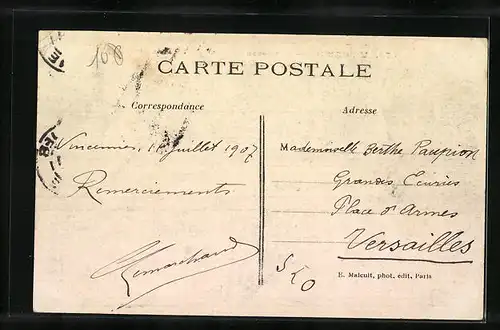 108
CARTE POSTALE
Correspondance
Adresse
Vincennes, 11 juillet 1907
Remerciements
Lemarchand
Mademoiselle Berthe Paupion
Grandes Ecuries
Place d'Armes
Versailles
E. Malcuit, phot. édit, Paris